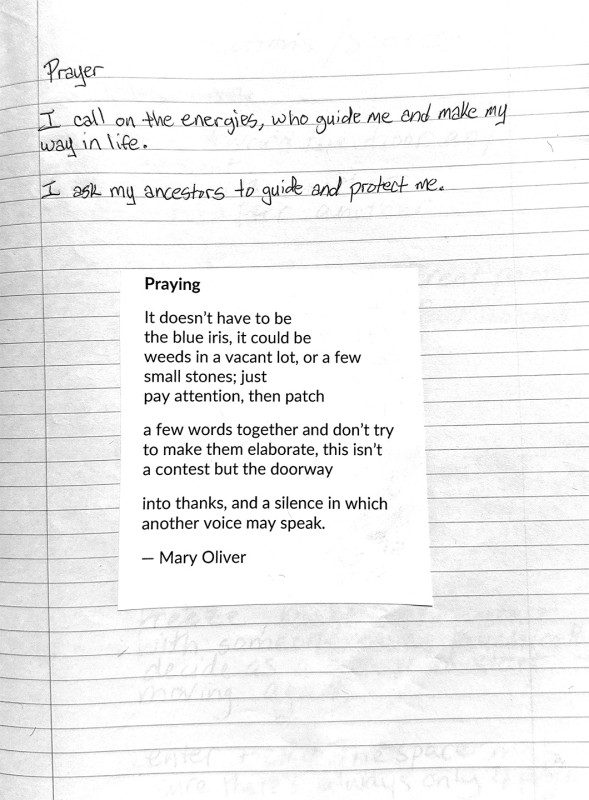 Prayer
I call on the energies, who guide me and make my
way in life.
I ask my ancestors to guide and protect me.
Praying
It doesn't have to be
the blue iris, it could be
weeds in a vacant lot, or a few
small stones; just
pay attention, then patch
a few words together and don't try
to make them elaborate, this isn't
a contest but the doorway
into thanks, and a silence in which
another voice may speak.
— Mary Oliver
decide as
moving
enter
the space
always only